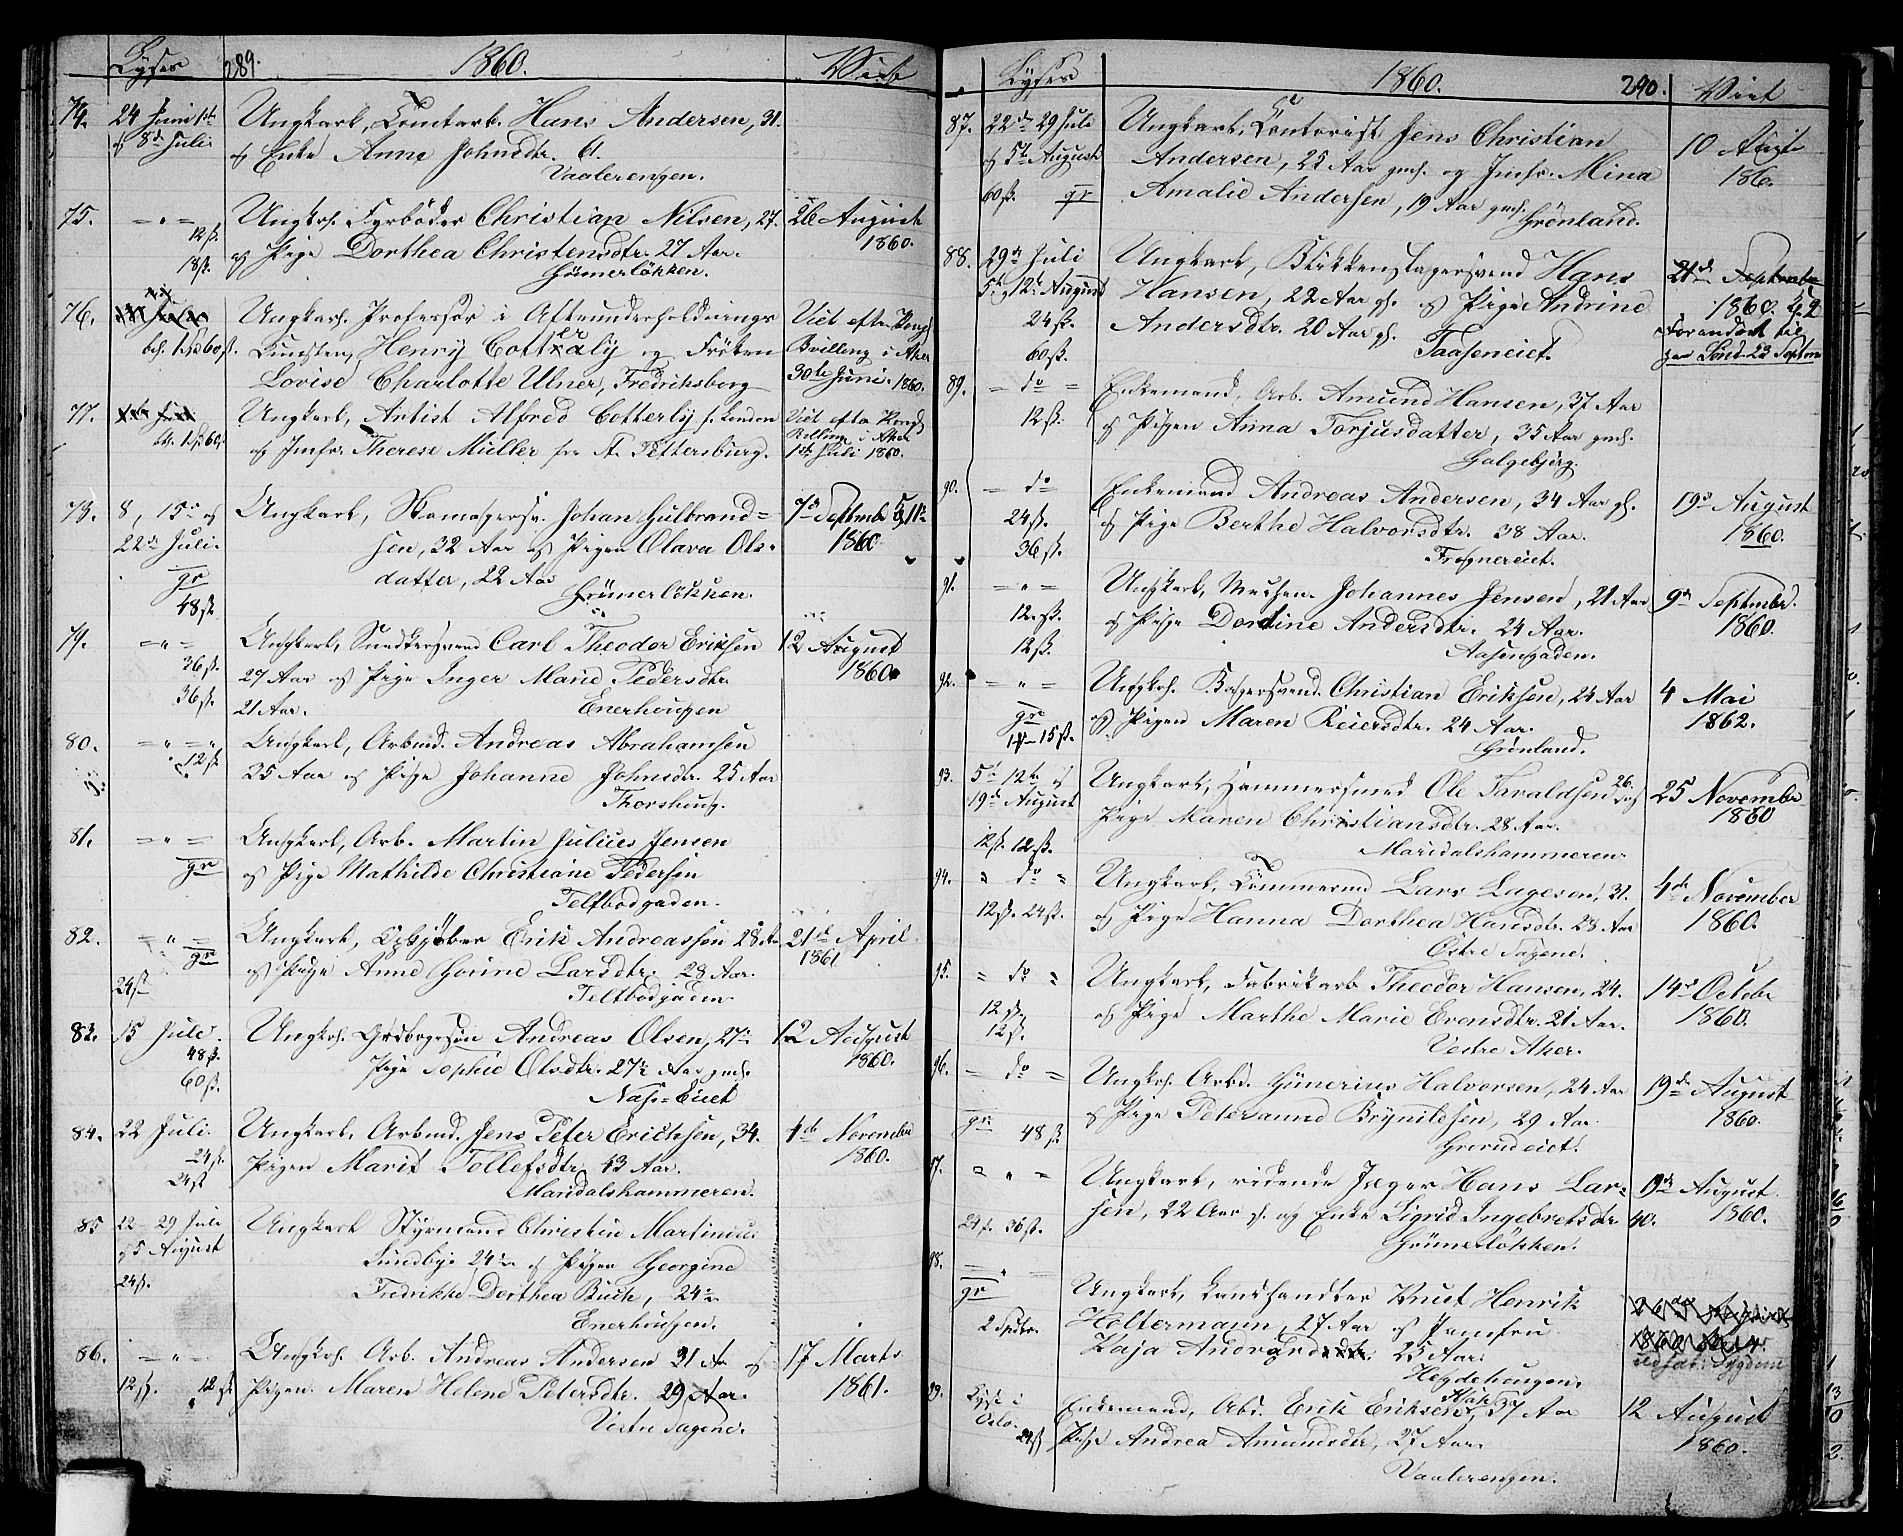 Lyses 289. 1860. Viet
74. 24 Juni 1ste Ungkarl, Hans Andersen, 31.
og 8de Juli og Enke Anne Johnsdtr. 61.
Vaalerengen.
75. — " — Ungkrl. Fyrbøder Christian Nilsen, 27. 26 August
12 ß. og Pige Dorthea Christensdtr. 27 Aar. 1860.
18 ß. Grünerløkken.
76. Ungkrl. Professor i Viet efter Kong
60 ß. Kunsten, Henry Cotterly og Frøken Bevilling i Aker
Lovise Charlotte Ulner, Fredriksborg 30te Juni 1860.
77. Ungkarl, Artist Alfred Cotterly f. London Viet efter Kong
og Jmfr. Therese Müller fra St. Pettersburg. Bevilling i Aker
1ste Juli 1860.
78. 8, 15de og Ungkarl, Skomagersv. Johan Gulbrand= 7de Septembr
22de Juli. sen, 32 Aar og Pigen Olava Ols= 1860
gr datter, 22 Aar
48 ß. Grünerløkken.
79. — " — Ungkarl, Snedkersvend Carl Theodor Eriksen 12 August
36 ß. 27 Aar og Pige Inger Marie Pedersdtr. 1860
36 ß. 21 Aar. Enerhougen
80. — " — Ungkarl, Arbmd. Andreas Abrahamsen
12 ß. 25 Aar og Pige Johanne Johnsdtr. 25 Aar
Thorshaug.
81. — " — Ungkarl, Arb. Martin Julius Jensen
gr og Pige Mathilde Christiane Pedersen
Teltbodgaden.
82. — " — Ungkarl, Opkjøber Erik Andreassen 28 Aar 21de April
gr og Pige Anne Larsdtr. 28 Aar. 1861
24 ß Teltbodgaden
83. 15 Juli. Ungkrl. Andreas Olsen, 27 12 August
48 ß. Pige Sophie Olsdtr. 27 Aar gml. 1860.
60 ß. Eiet
84. 22 Juli. Ungkarl, Arbmd. Jens Peter Erichsen, 34. 4de November
24 ß. Pigen Marit Tollefsdtr. 43 Aar. 1860.
24 ß Maridalshammeren.
85 22 — 29 Juli Ungkarl Styrmand Christin Martinius
og 5 August Sundby 24 og Pigen Georgine
24 ß. Fredrikke Dorthea Buck, 24
Enerhaugen.
86. — " — Ungkrl. Arb. Andreas Andersen 21 Ar og 17 Marts
12 ß. 12 ß Pigen Maren Helene Petersdtr. 29 Aar. 1861.
Vestre Sagene.
Lyses 1860. 290. Viet
87. 22de 29 Juli Ungkarl, Contorist Jens Christian 10 August
og 5te August Andersen, 25 Aar gml. og Jmfr. Mina 1860.
60 ß. gr Amalie Andersen, 19 Aar gml.
Grønland.
88. 29de Juli Ungkarl, Blikkenslagersvend Hans 21de September
5te og 12te August Hansen, 22 Aar gl. og Pige Andrine 1860. Kl. 2
24 ß. Andersdtr. 20 Aar gl. Forandret til
60 ß. Taaseneiet. Sönd. 23 Septem
89. — do — Enkemand, Arb. Amund Hansen, 37 Aar
12 ß. og Pigen Anna Torjusdatter, 35 Aar gml.
Galgebjerg.
90. — do Enkemand Andreas Andersen, 34 Aar gl. 19de August
24 ß. og Pige Berthe Halvorsdtr. 38 Aar. 1860.
36 ß. Frognereiet.
91. — " — Ungkarl, Johannes Jensen, 21 Aar 9de Septembr.
12 ß. og Pige Dortine Andersdtr. 24 Aar. 1860.
12 ß. Aasengaden.
92. — " — Ungkrl. Bagersvend Christian Eriksen, 24 Aar 4 Mai
gr og Pigen Maren Reiersdtr. 24 Aar. 1862.
15 ß. Grønland.
93. 5te 12te og Ungkarl, Hammersmed Ole Taraldsen 26 og 25 November
19de August Pige Maren Christiansdtr. 28 Aar. 1860
12 ß. 12 ß. Maridalshammeren
94. " do " Ungkarl, Tømmermd Lars Lagesen, 31. 4de November
12 ß. 24 ß. og Pige Hanna Dorthea Hansdtr. 23 Aar 1860.
Østre Sagene.
95. " do " Ungkarl, Fabrikarb. Theodor Hansen, 24. 14de Octobr
12 ß. og Pige Marthe Marie Evensdtr. 21 Aar. 1860.
12 ß. Vestre Aker.
96. — do — Ungkrl. Arbd. Günerius Halvorsen, 24 Aar 19de August
gr og Pige Petersanne Brynildsen, 29 Aar 1860.
48 ß. Grorudeiet.
97. " " " Ungkarl, ridende Jæger Hans Lar= 19de August
24 ß. 36 ß. sen, 22 Aar gl. og Enke Sigrid Ingebretsdtr 40. 1860.
Grünerløkken.
98. — " —
gr Ungkarl, Landhandler Knut Henrik
2 Spdlr. Holtermann, 27 Aar og Jomfru
Kaja 25 Aar.
Hegdehougen.
99. Lyst i Enkemand, Arb. Erik Eriksen 37 Aar 12 August
Oslo. 24 ß Pige Andrea Amundsdtr, 27 Aar. 1860.
Vaalerengen.